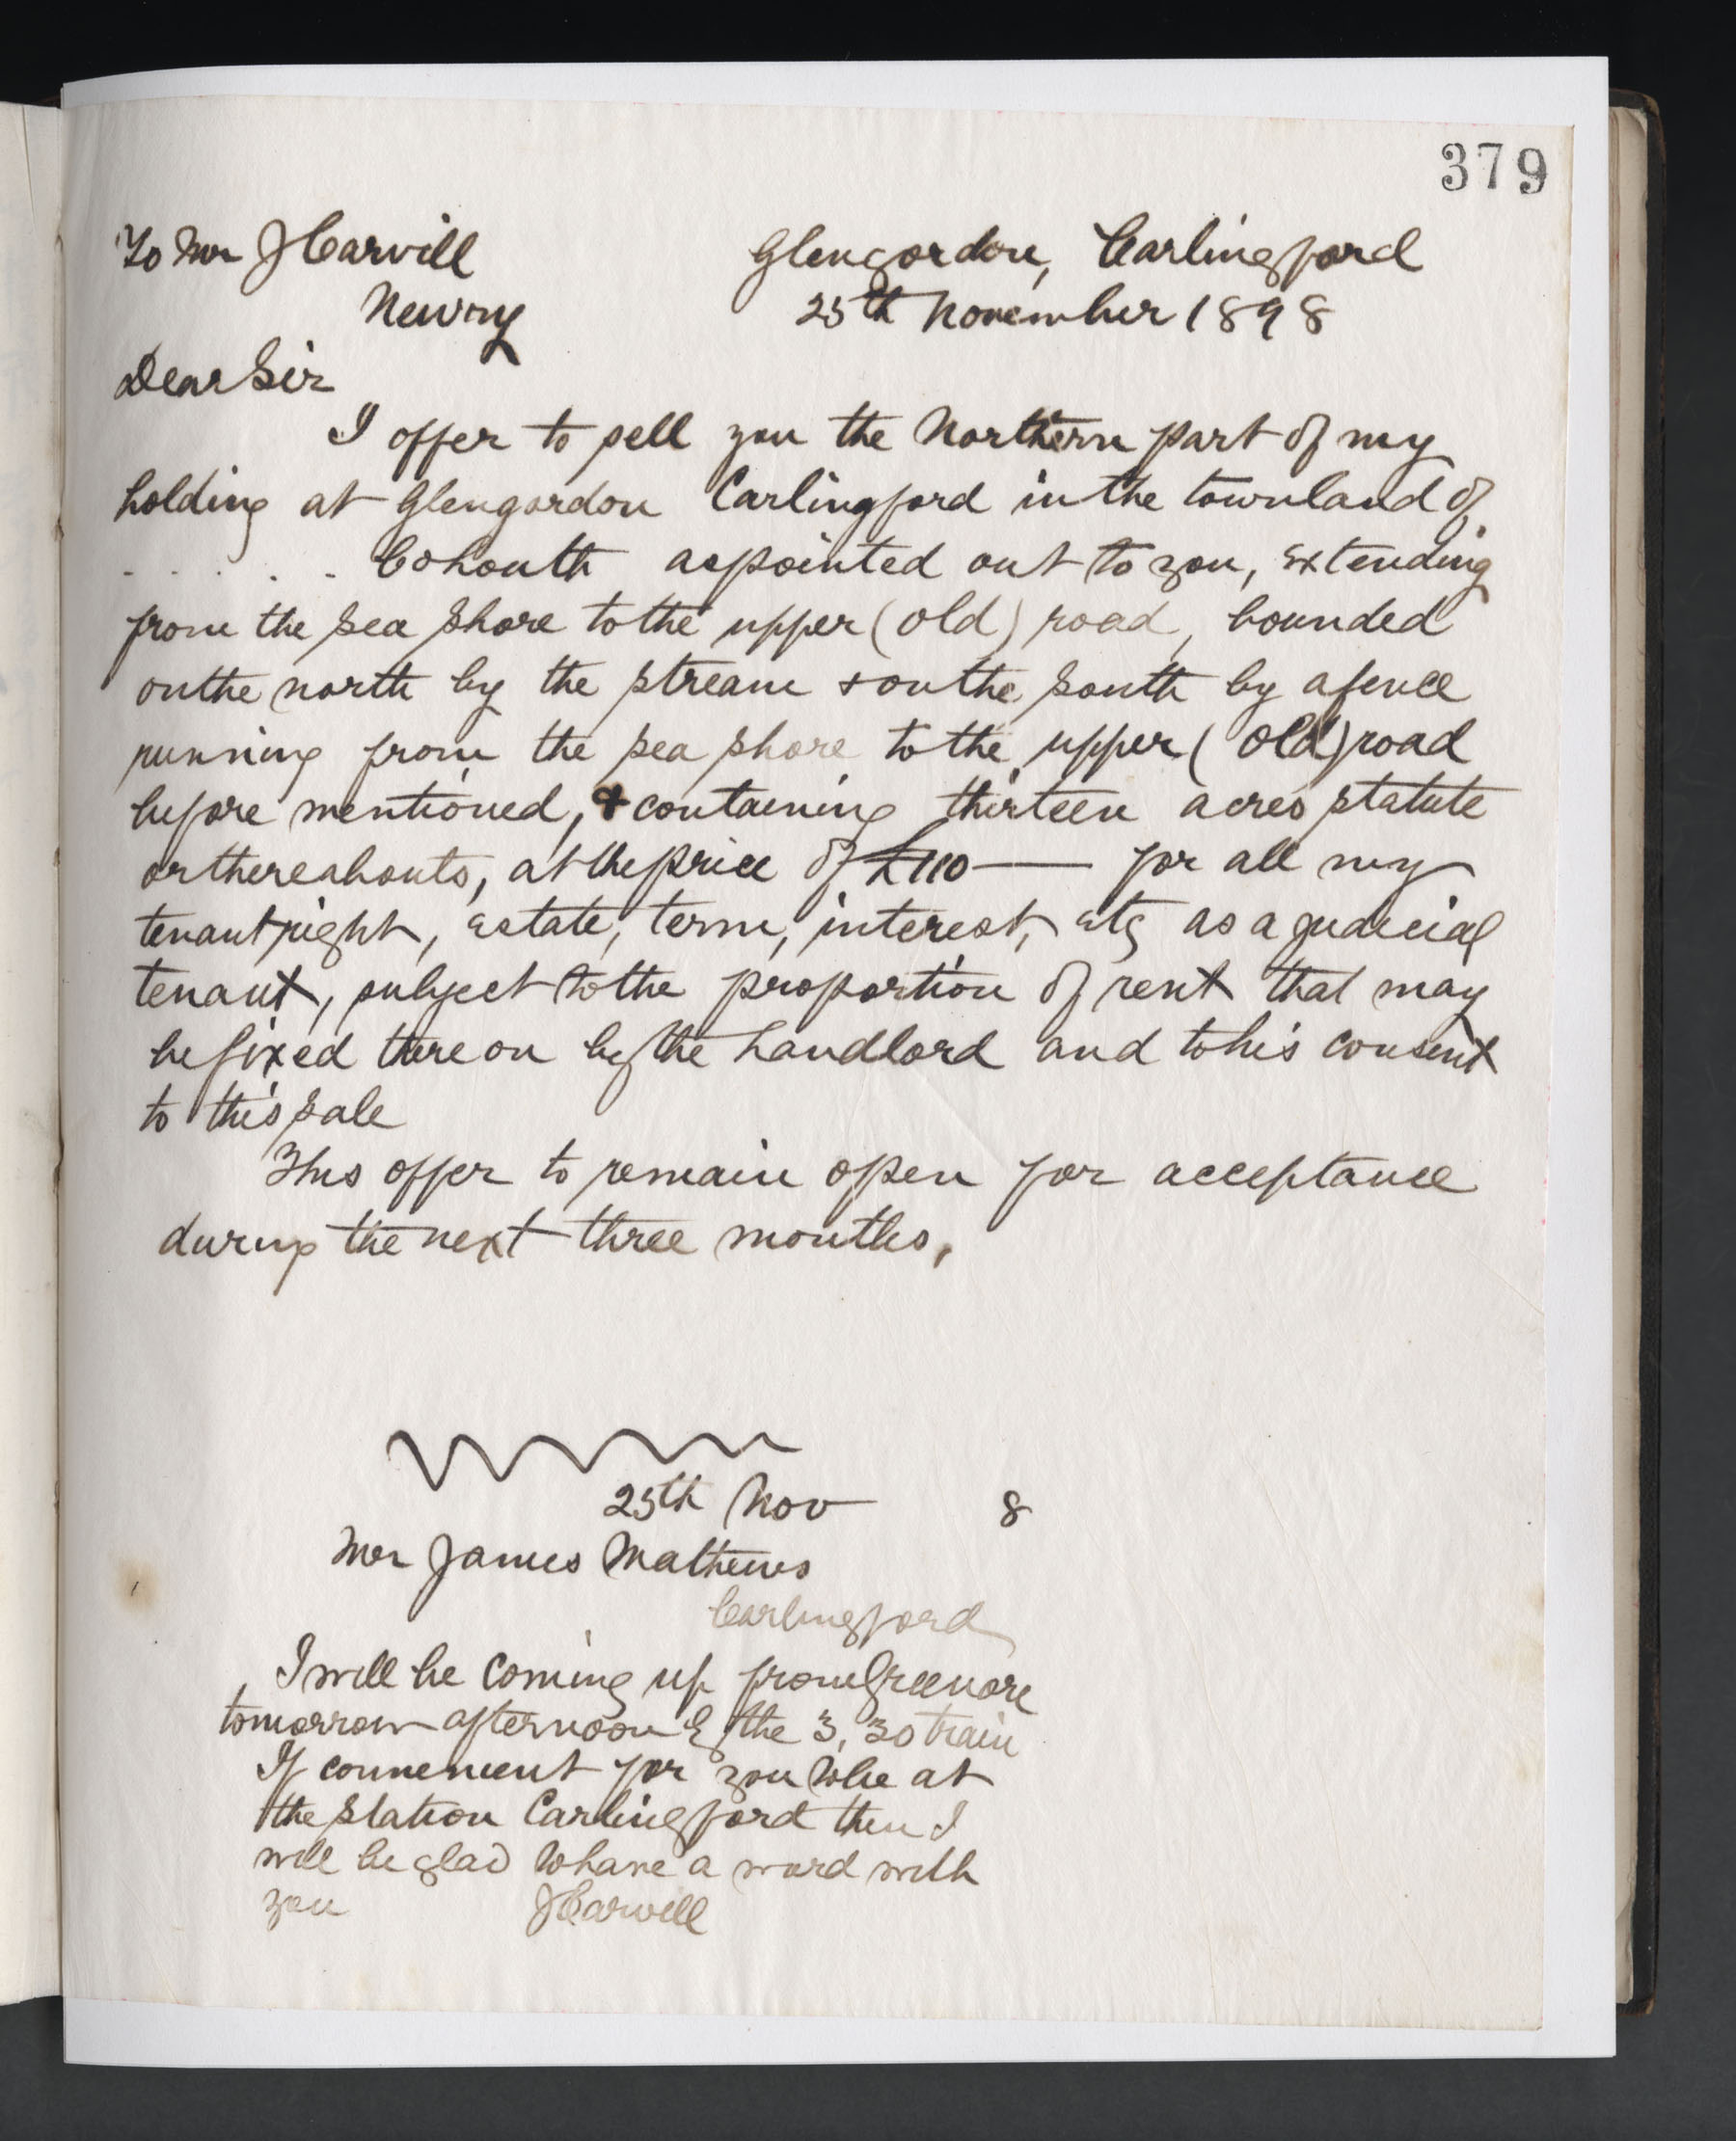 379
To Mr J Carvill
Glengordon, Carlingford
Newry
25th November 1898
Dear Sir
I offer to sell you the Northern part of my
holding at Glengordon Carlingford in the townland of
. . . . . as pointed out to you, extending
from the sea shore to the upper (old) road, bounded
on the north by the stream & on the south by a fence
running from the sea shore to the upper (old) road
before mentioned, & containing thirteen acres statute
or thereabouts, at the price of £110 — for all my
tenant right, estate, term, interest, etc as a judicial
tenant, subject to the proportion of rent that may
be fixed thereon by the Landlord and to his consent
to this sale
This offer to remain open for acceptance
during the next three months,
25th Nov 8
Mr James Mathews
Carlingford
I will be coming up from Greenore
tomorrow afternoon by the 3,30 train
If convenient for you to be at
the station Carlingford then I
will be glad to have a word with
you JCarvill